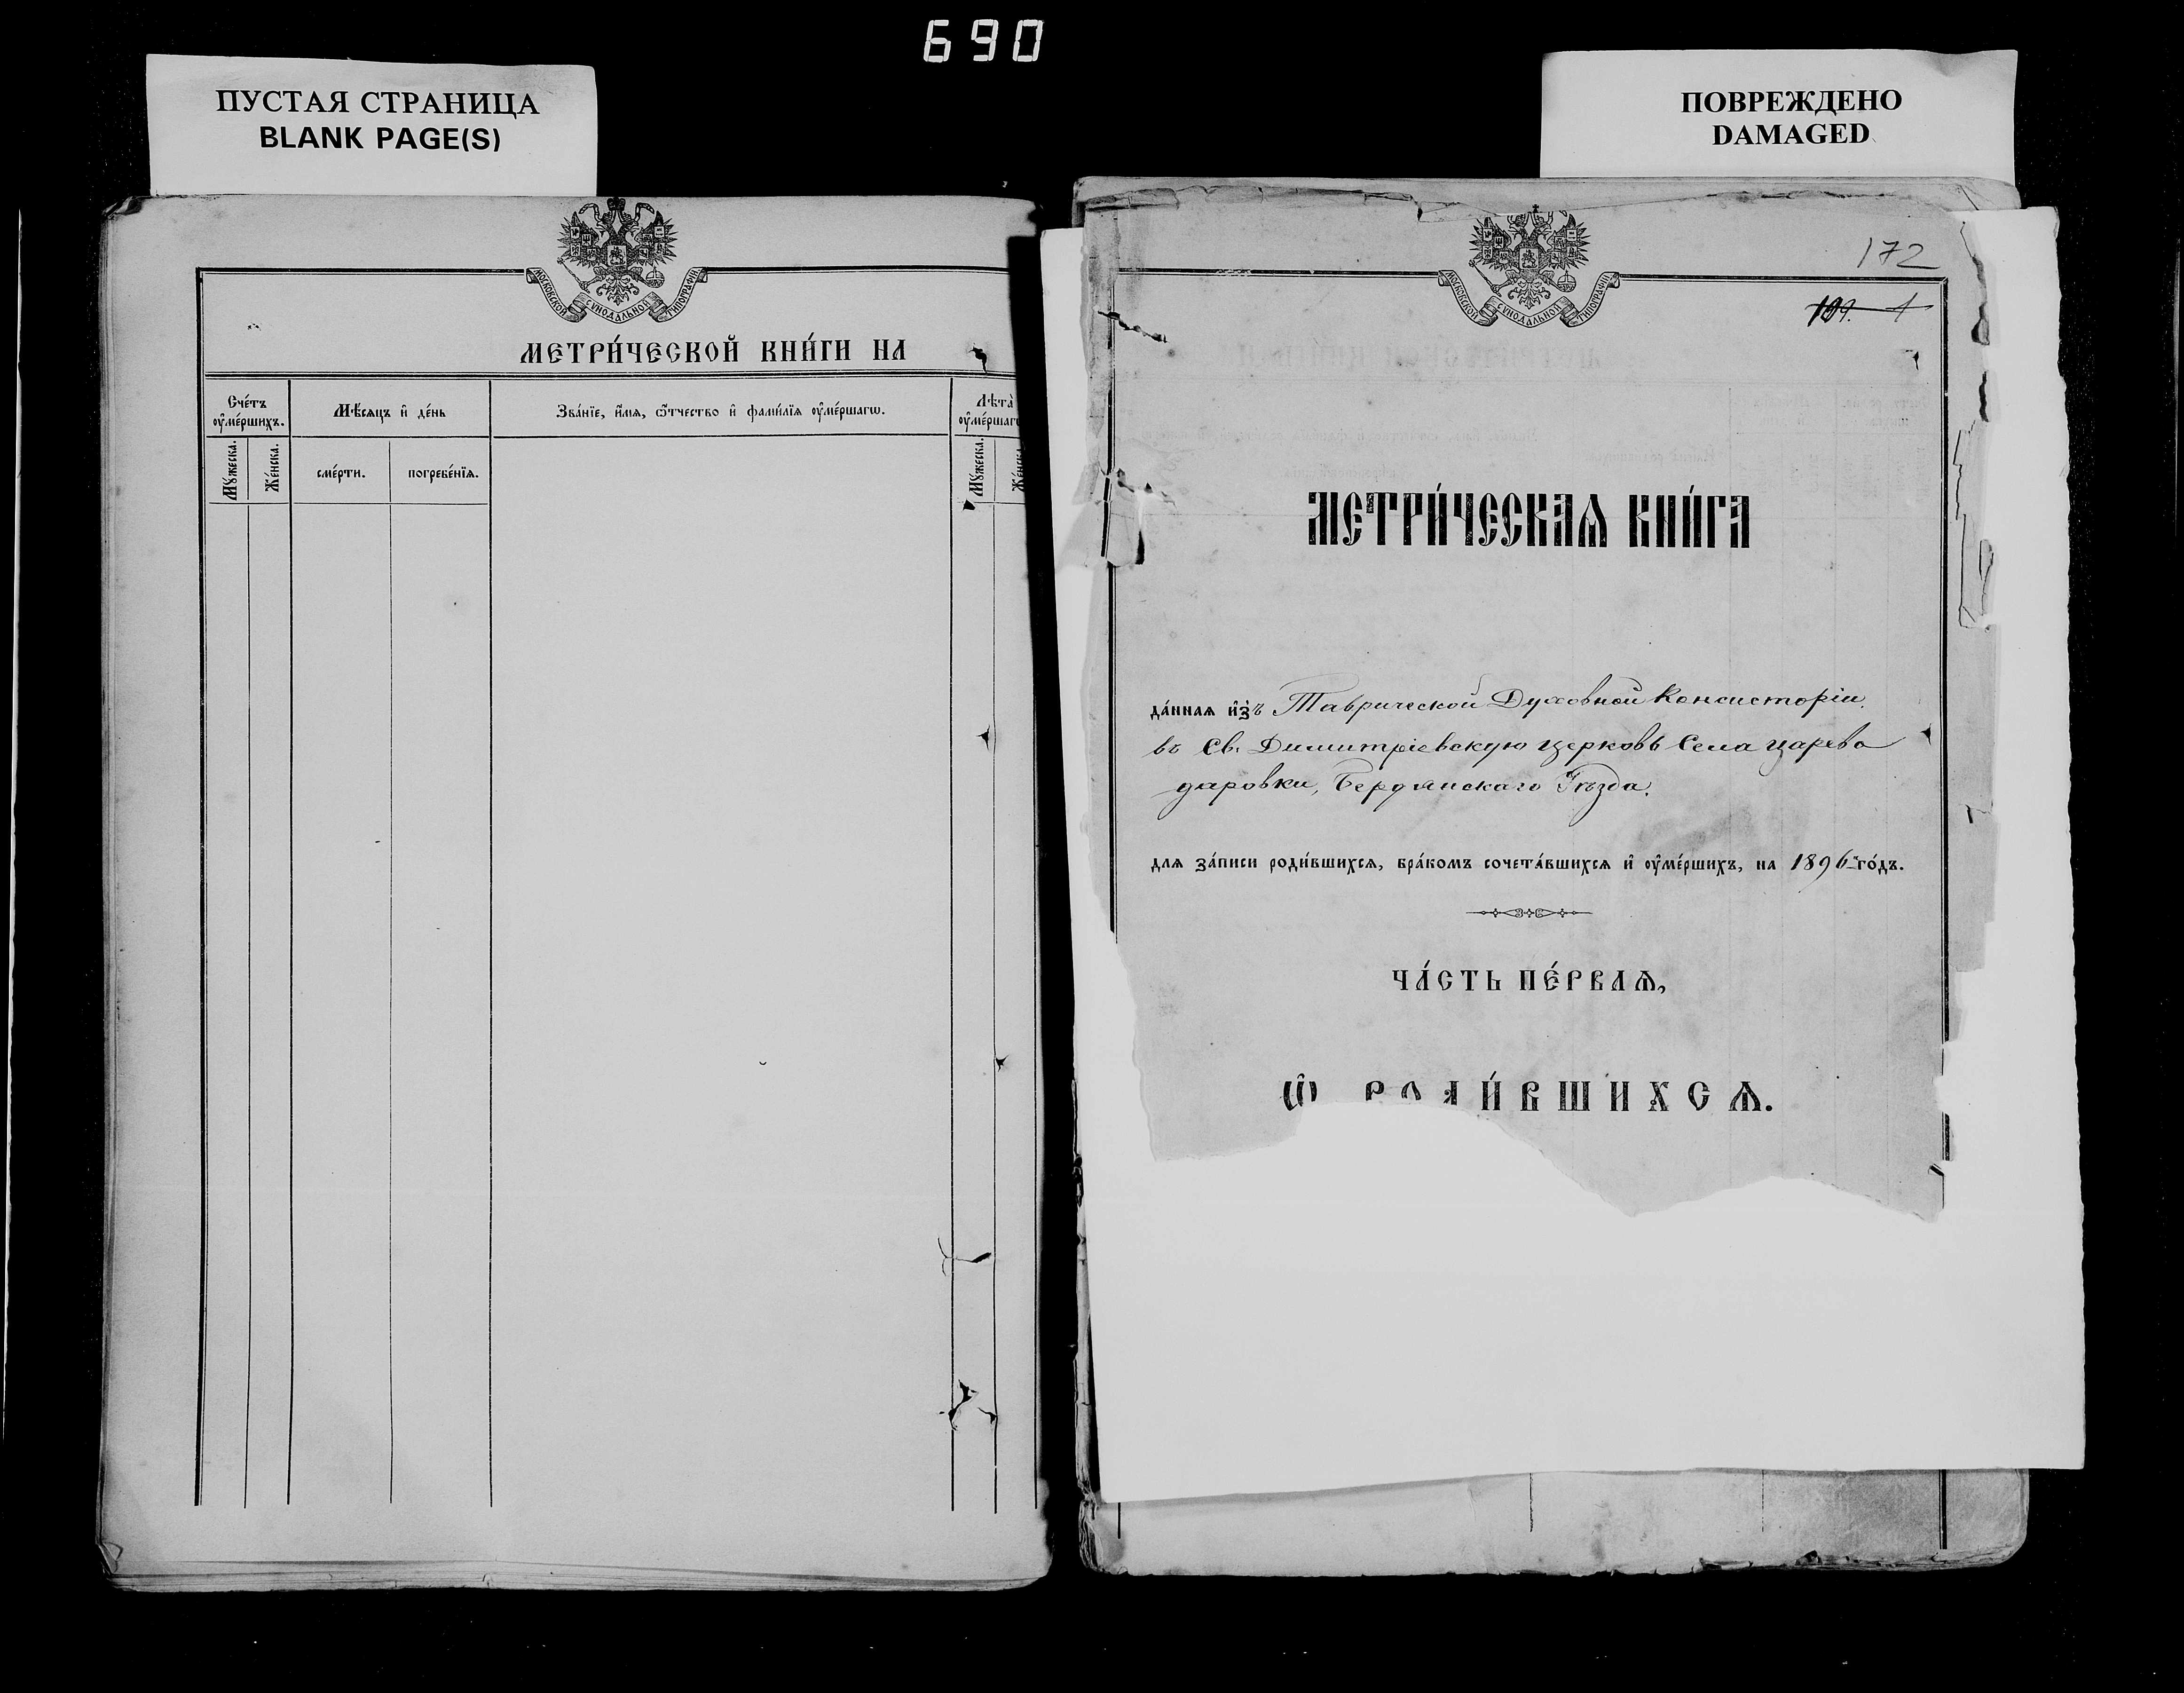 690
ПУСТАЯ СТРАНИЦА
BLANK PAGE(S)
МОСКОВСКОЙ СѴНОДАЛЬНОЙ ТИПОГРАФІИ
МЕТРИ́ЧЕСКОЙ КНИ́ГИ НА
Сче́тъ ᲂу҆ме́ршихъ.
Мѣ́сяцъ и҆ де́нь
Зва́нїе, и҆́мѧ, ѻ҆́тчество и҆ фами́лїѧ ᲂу҆ме́ршагѡ.
Лѣта̀ ᲂу҆ме́ршагѡ
Мꙋ́жеска.
Же́нска.
сме́рти.
погребе́нїѧ.
Мꙋ́жеска.
Же́нска
ПОВРЕЖДЕНО
DAMAGED
МОСКОВСКОЙ СѴНОДАЛЬНОЙ ТИПОГРАФІИ
172
199. 1
МЕТРИ́ЧЕСКАѦ КНИ́ГА
да́ннаѧ и҆зъ Таврической Духовной Консисторіи,
въ Св. Димитріевскую церковь Села Царево
даровки, Бердянскаго Уѣзда.
длѧ за́писи роди́вшихсѧ, бра́комъ сочета́вшихсѧ и҆ ᲂу҆ме́ршихъ, на 1896 й го́дъ.
ЧА́СТЬ ПЕ́РВАѦ,
Ѡ҆ РОДИ́ВШИХСѦ.